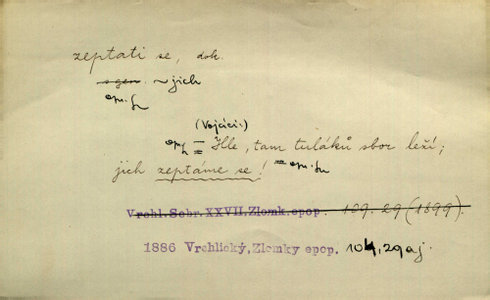 zeptati se, dok.
s gen. ~ jich
(Vojáci:)
= Hle, tam tuláků sbor leží;
jich zeptáme se! =
Vrchl. Sebr. XXVII, Zlomk. epop. 109. 29 (1899).
1886 Vrchlický, Zlomky epop. 104, 29 aj.